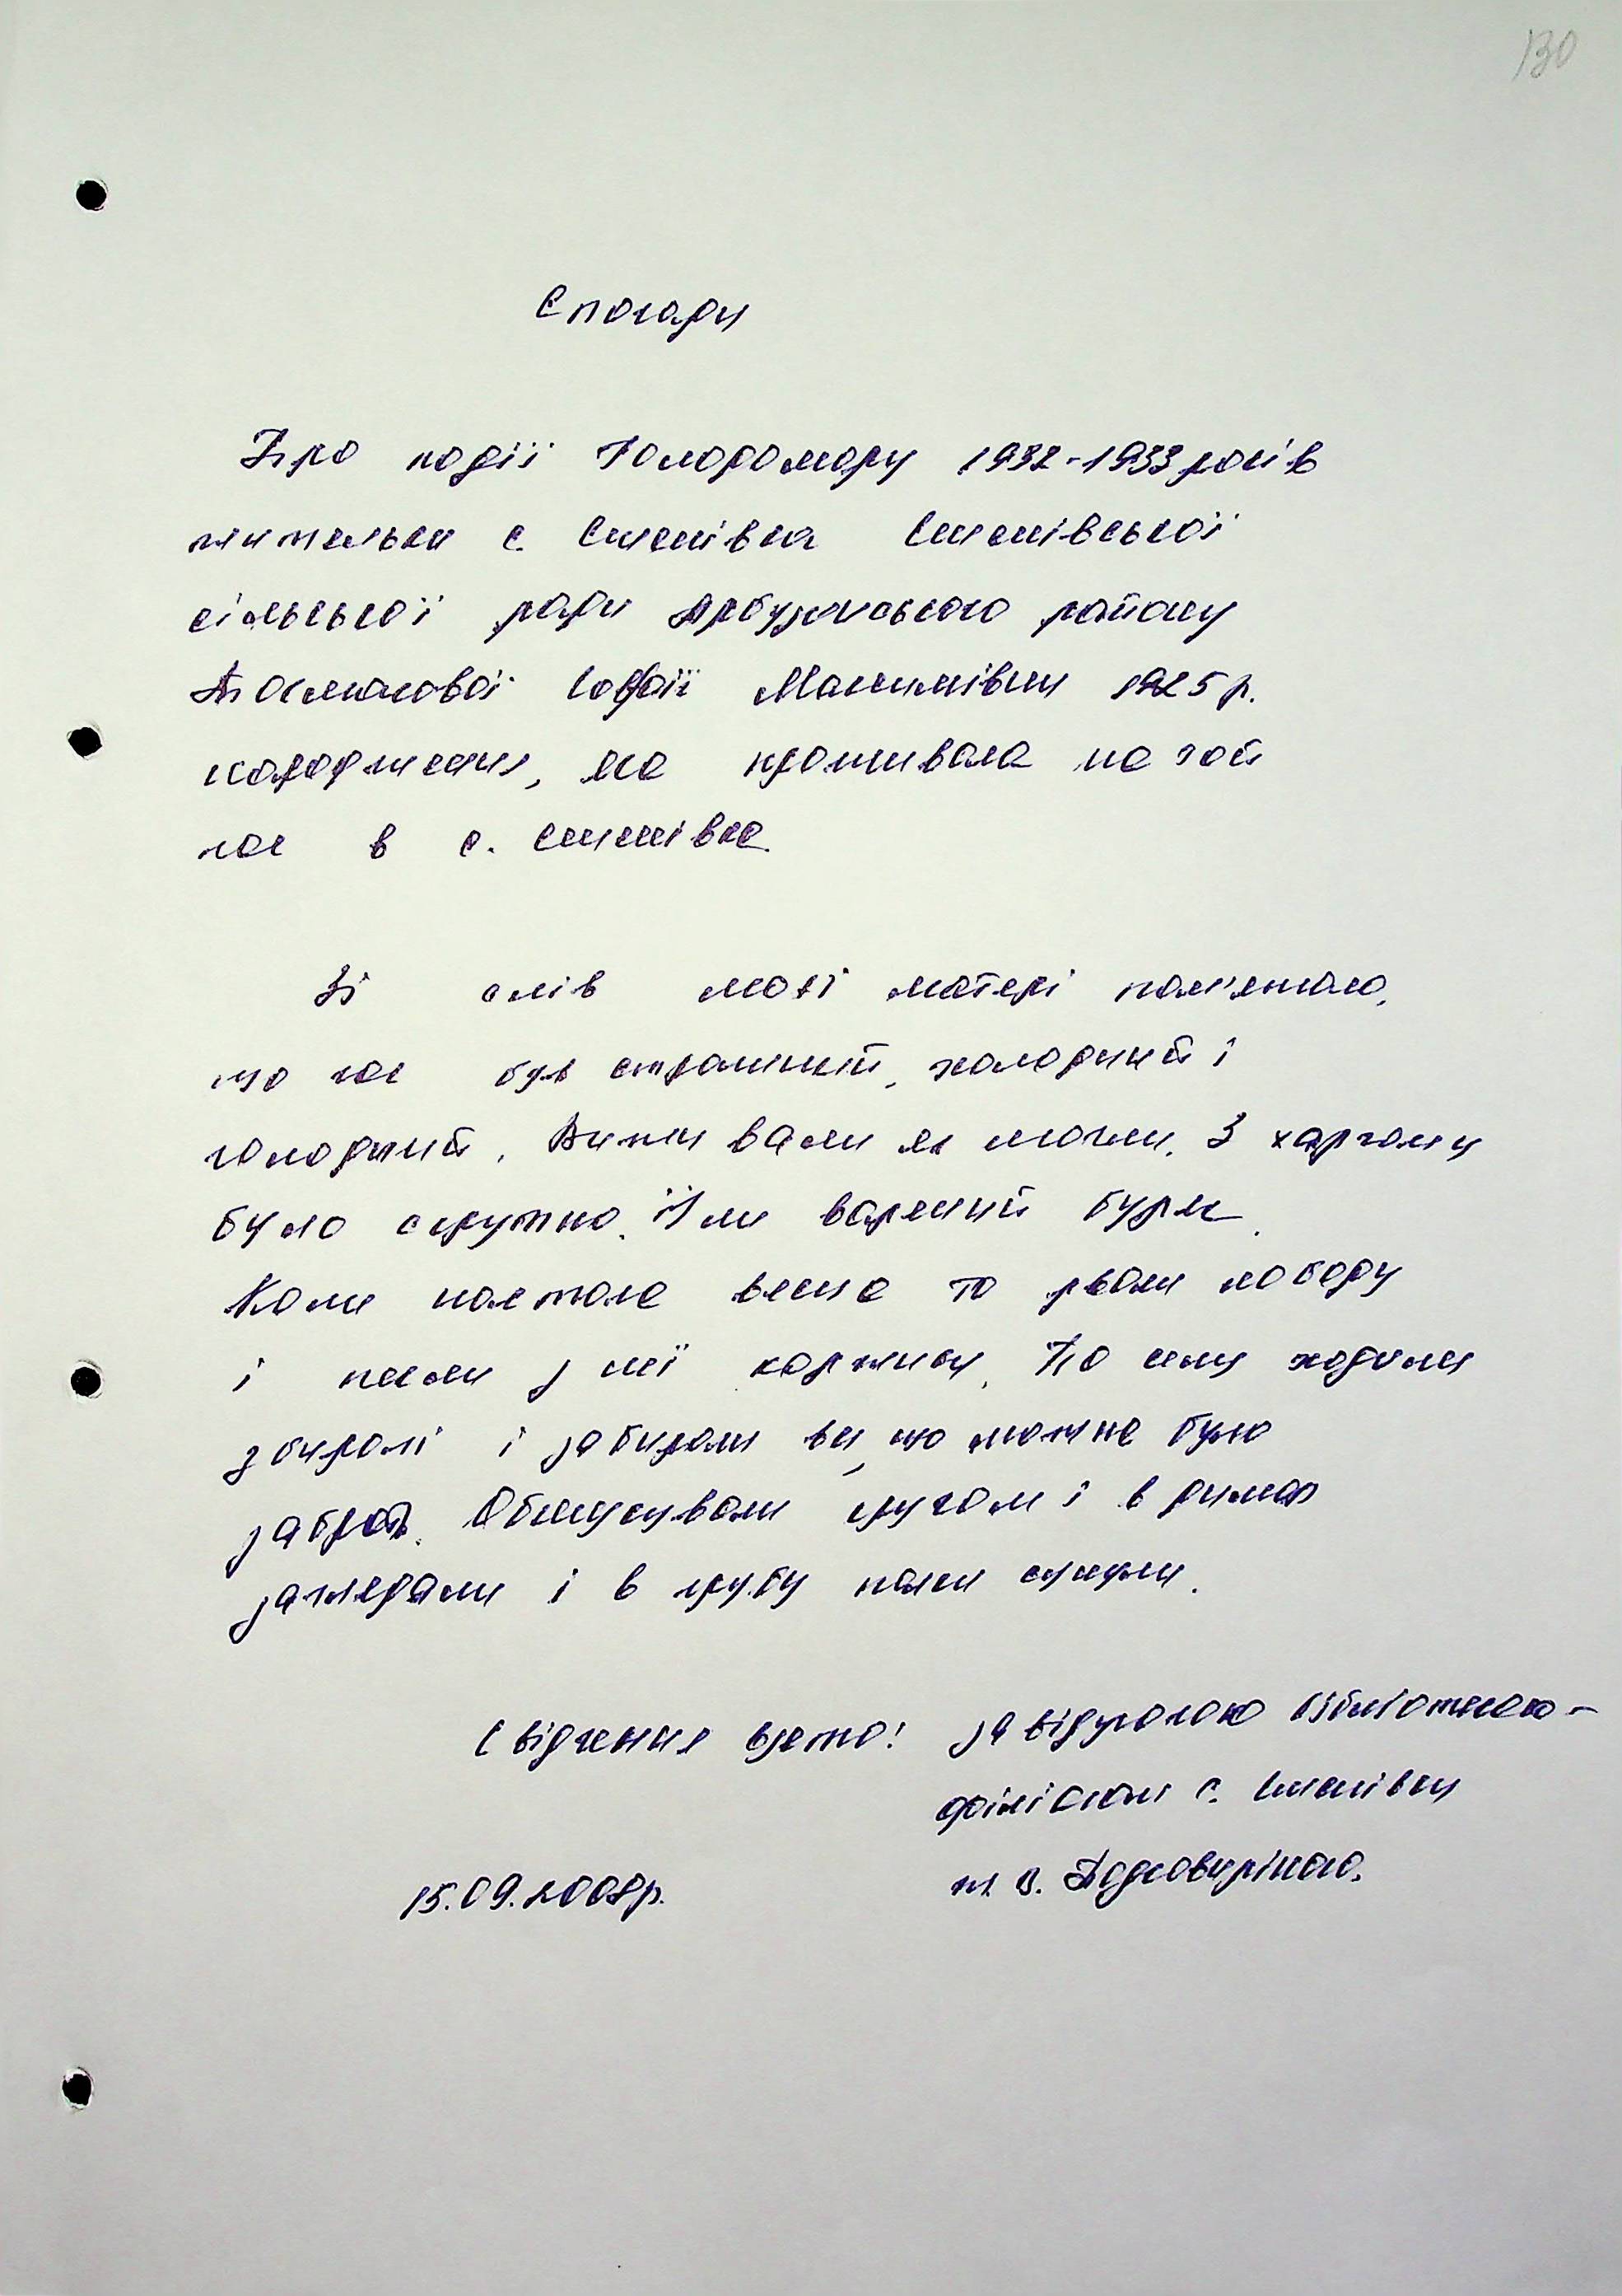 130
Спогади
Про події Голодомору 1932-1933 років
жительки с. Семенівка Семенівської
сільської ради Арбузинського району
Софії Максимівни 1925 р.
народження, яка проживала на той
час в с. Семенівка.
Зі слів моєї матері пам'ятаю,
що час був страшний, холодний і
голодний. Виживали як могли. З харчами
було скрутно. Їли варений буряк.
Коли настала весна то рвали лободу
і пекли з неї коржики. По селу ходили
збиралі і забирали все, що можна було
забрать. Обшукували кругом і в димар
заглядали і в грубу палки сунули.
Свідчення взято: завідуючою бібліотекою-
філіалом с. Семенівки
15.09.2008р.